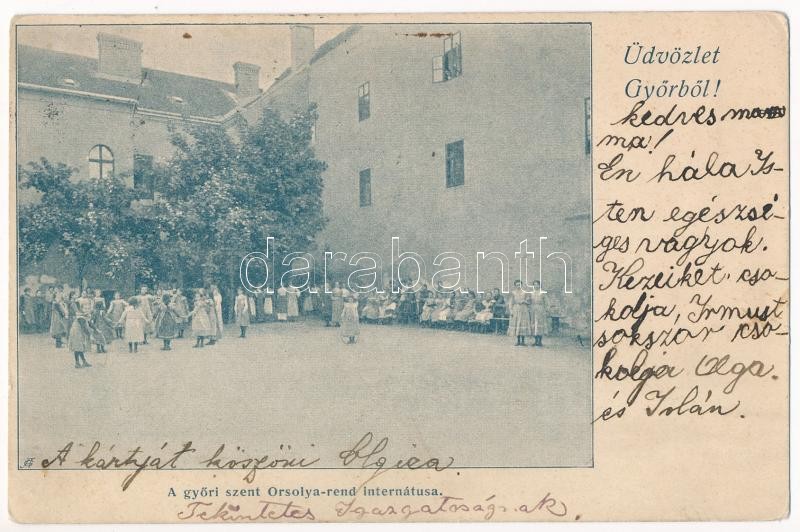 Üdvözlet
Győrből!
kedves mam
ma!
Én hála Is-
ten egészsé-
ges vagyok.
Kezeiket cso-
kolja, Irmust
sokszor cso-
kolja Olga.
és Irlán.
darabanth.com
A kártyát köszöni Olgica
A győri szent Orsolya-rend internátusa.
Tekintetes Igazgatóságnak.